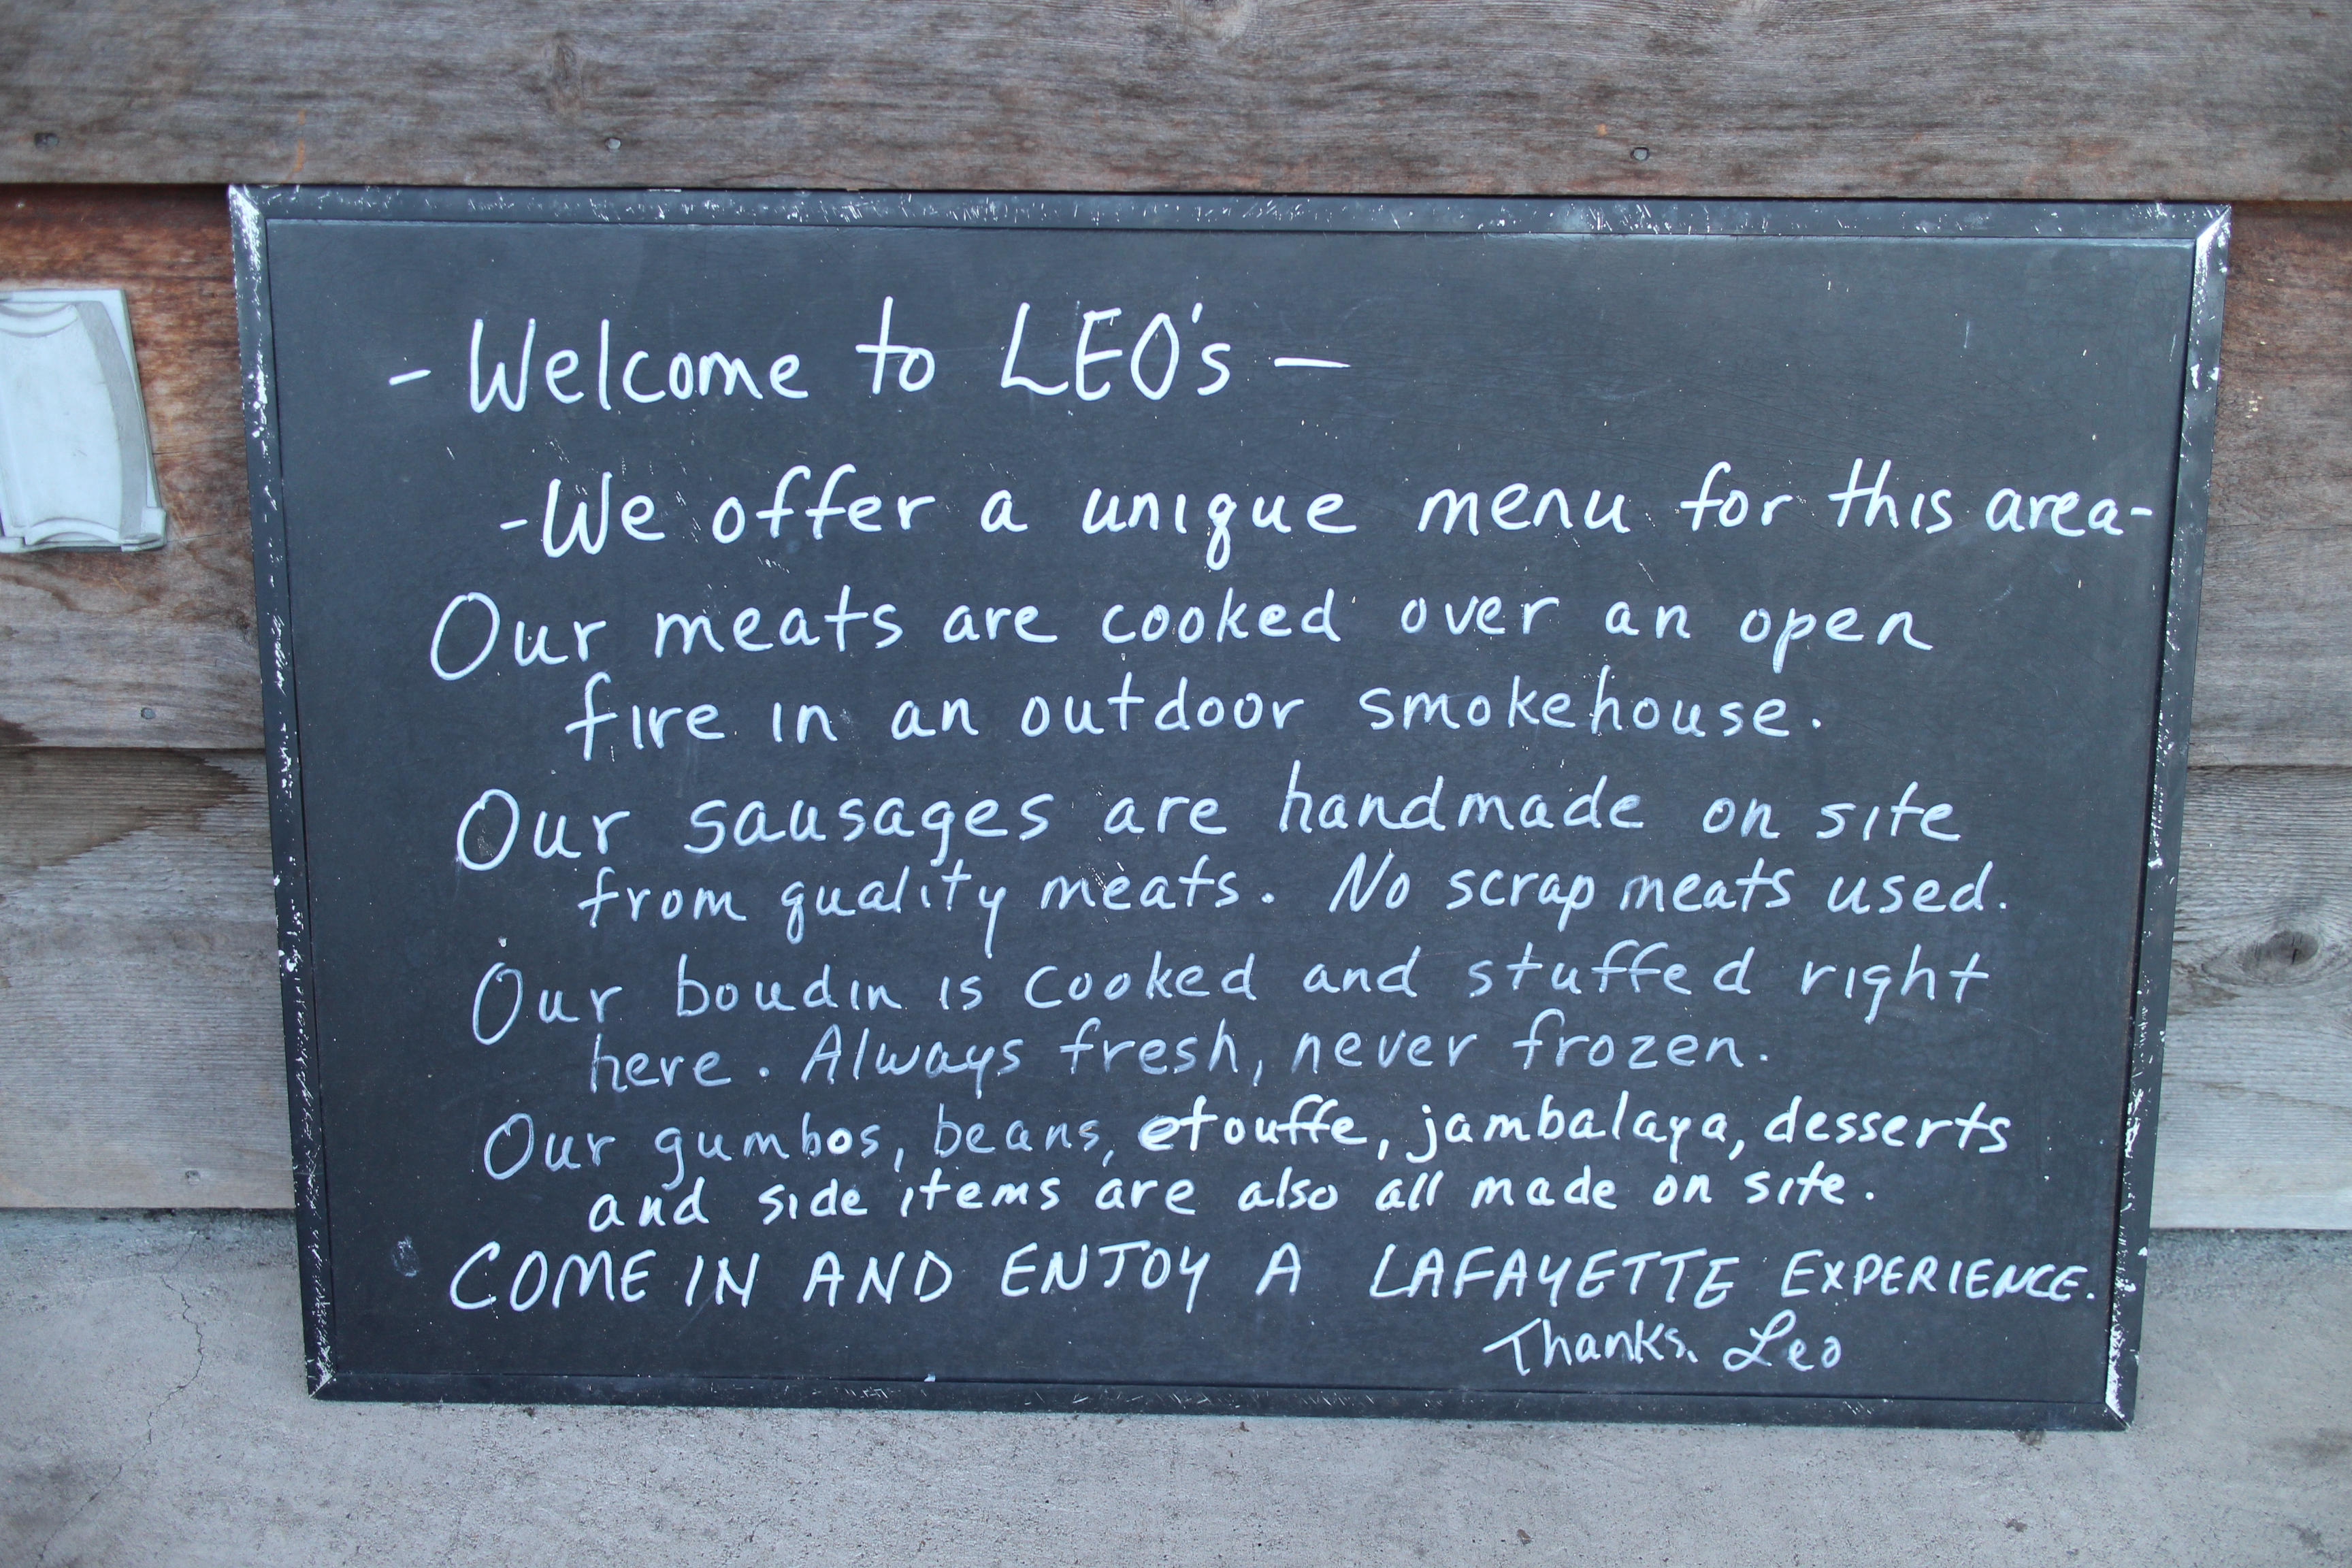 - Welcome to LEO's -
-We offer a unique menu for this area-
Our meats are cooked over an open
fire in an outdoor smokehouse.
Our sausages are handmade on site
from quality meats. No scrap meats used.
Our boudin is cooked and stuffed right
here. Always fresh, never frozen.
Our gumbos, beans, etouffe, jambalaya, desserts
and side items are also all made on site.
COME IN AND ENJOY A LAFAYETTE EXPERIENCE.
Thanks. Leo